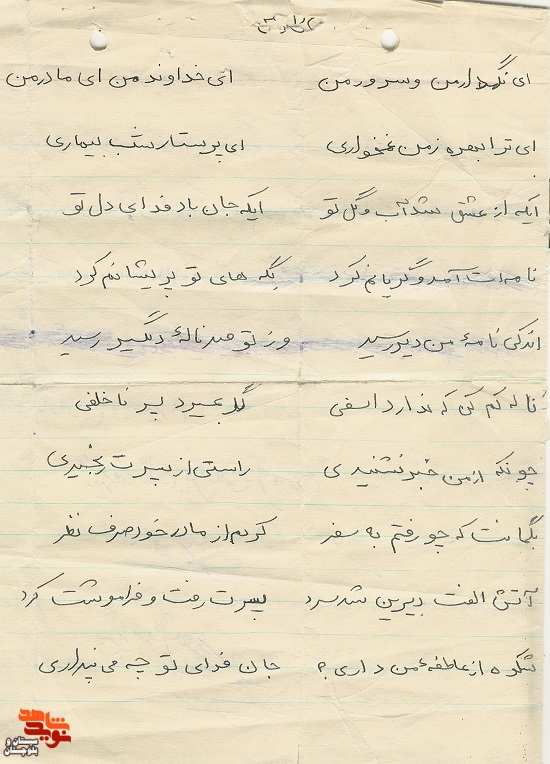 ای نگهدار من و سرور من ای خداوند من ای مادر من
ای ترا بهره ز من غمخواری ای پرستار شب بیماری
ایکه از عشق شد آب و گل تو ایکه جان باد فدای دل تو
نامه ات آمد و گریانم کرد گله های تو پریشانم کرد
اندکی نامهٔ من دیر رسید وز تو صد نالهٔ دلگیر رسید
ناله کم کن که ندارد اسفی گر بمیرد پسر ناخلفی
چونکه از من خبر نشنیدی راستی از پسرت رنجیدی
بگمانت که چو رفتم به سفر کردم از مادر خود صرف نظر
آتش الفت دیرین شد سرد پسرت رفت و فراموشت کرد
شکوه از عاطفهٔ من داری ؟ جان فدای تو چه می پنداری
شاهد
نوید
سیستان و
بلوچستان